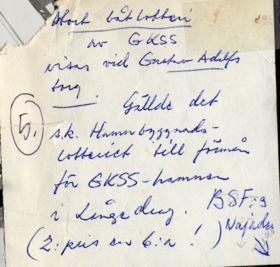 Stort båtlotteri
av GKSS
visas vid Gustav Adolfs
torg. Gällde det
5.
s.k. Hamnbyggnads-
lotteriet till förmån
för GKSS-hamnen
i Långedrag.
BSF:s
Najaden
(2:pris en 6:a!)